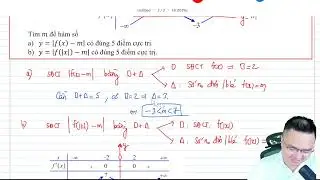 -∞
-3
Tìm m để hàm số
a) y = |f(x) − m| có đúng 5 điểm cực trị
b) y = |f(|x|) − m| có đúng 5 điểm cực trị.
a) SĐCT |f(x) − m| bằng □ + Δ
□ SĐCT f(x) ⇒ □ = 2
Δ : Số n đơn | bội lẻ f(x) = m
Cần □ + Δ = 5, có □ = 2 ⇒ Δ = 3.
⇔ -3 < m < 7
b) SĐCT |f(|x|) − m| bằng □ + Δ
□ : SĐCT f(|x|)
Δ : Số n đơn | bội lẻ f(|x|) =
y
x -∞ -2 0 2
f'(x) 0 0